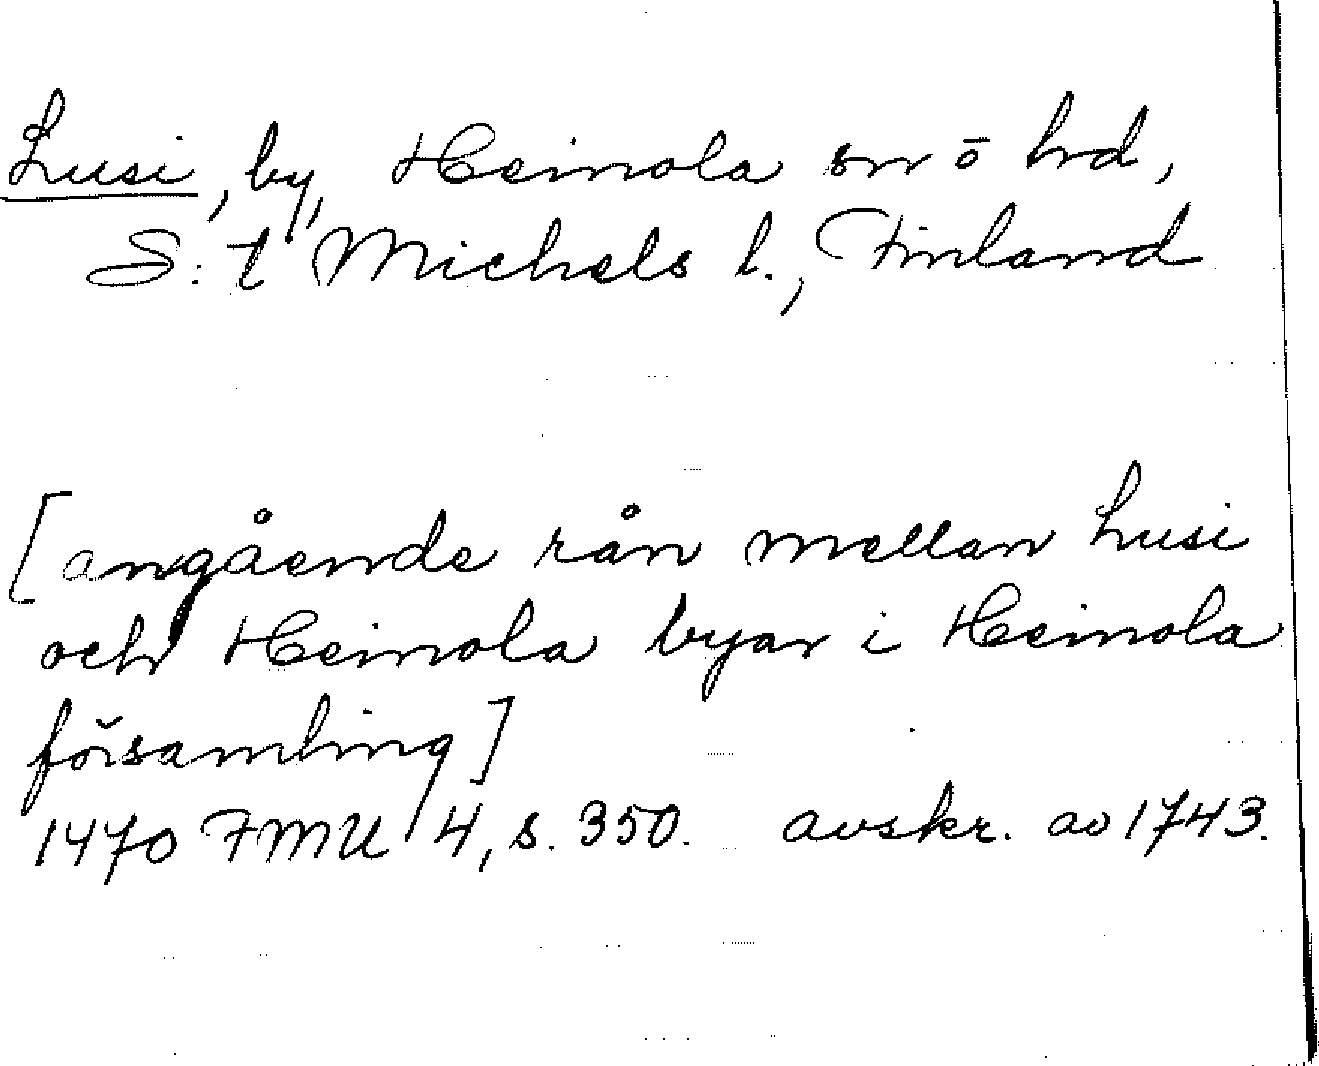 Lusi, by, Heinola sn o hd,
S:t Michels l., Finland
[angående rån mellan Lusi
och Heinola byar i Heinola
församling]
1470 FMU 4, s. 350. avskr. av 1743.